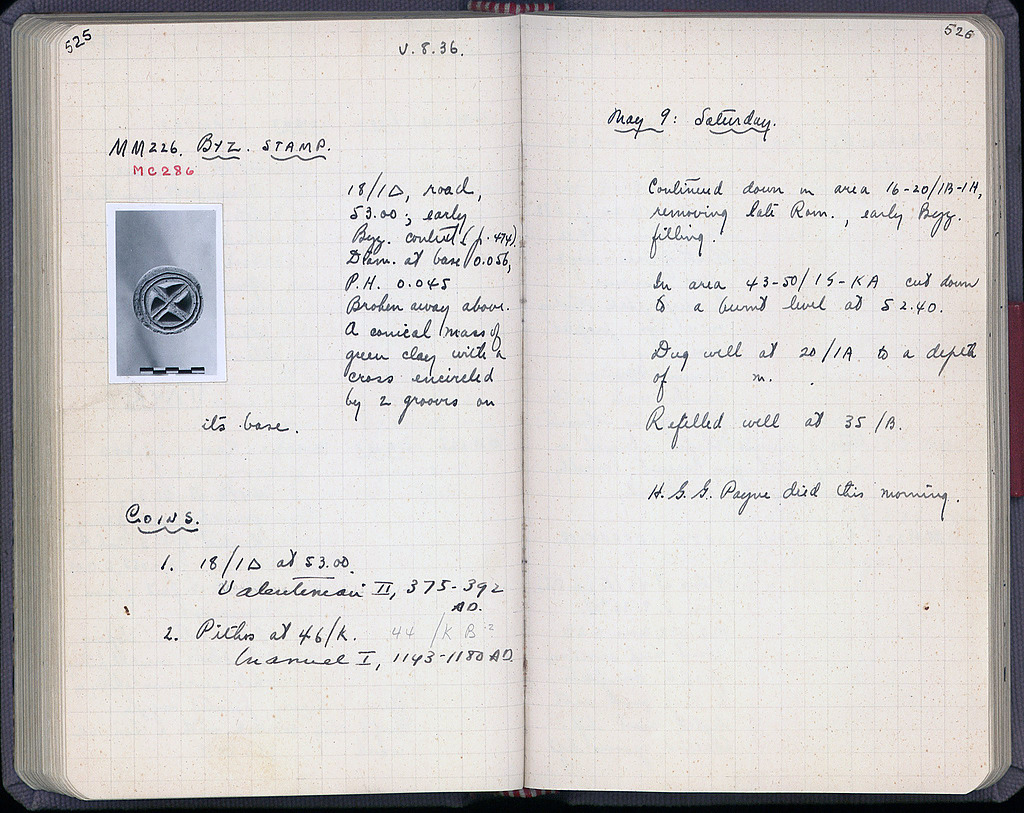 525
V.8.36.
MM226. BYZ. STAMP.
MC286
18/1Δ, road,
53.00; early
Byz. context (p. 474).
Diam. at base 0.056,
P.H. 0.045
Broken away above.
A conical mass of
green clay with a
cross encircled
by 2 grooves on
its base.
COINS.
1. 18/1Δ at 53.00.
Valentinian II, 375-392
AD.
2. Pithos at 46/K. 44/KB?
Manuel I, 1143-1180 AD.
526
May 9: Saturday.
Continued down in area 16-20/1B-1H,
removing late Rom., early Byz.
filling.
In area 43-50/IS-KA cut down
to a burnt level at 52.40.
Dug well at 20/1A to a depth
of m.
Refilled well at 35/B.
H.G.G. Payne died this morning.